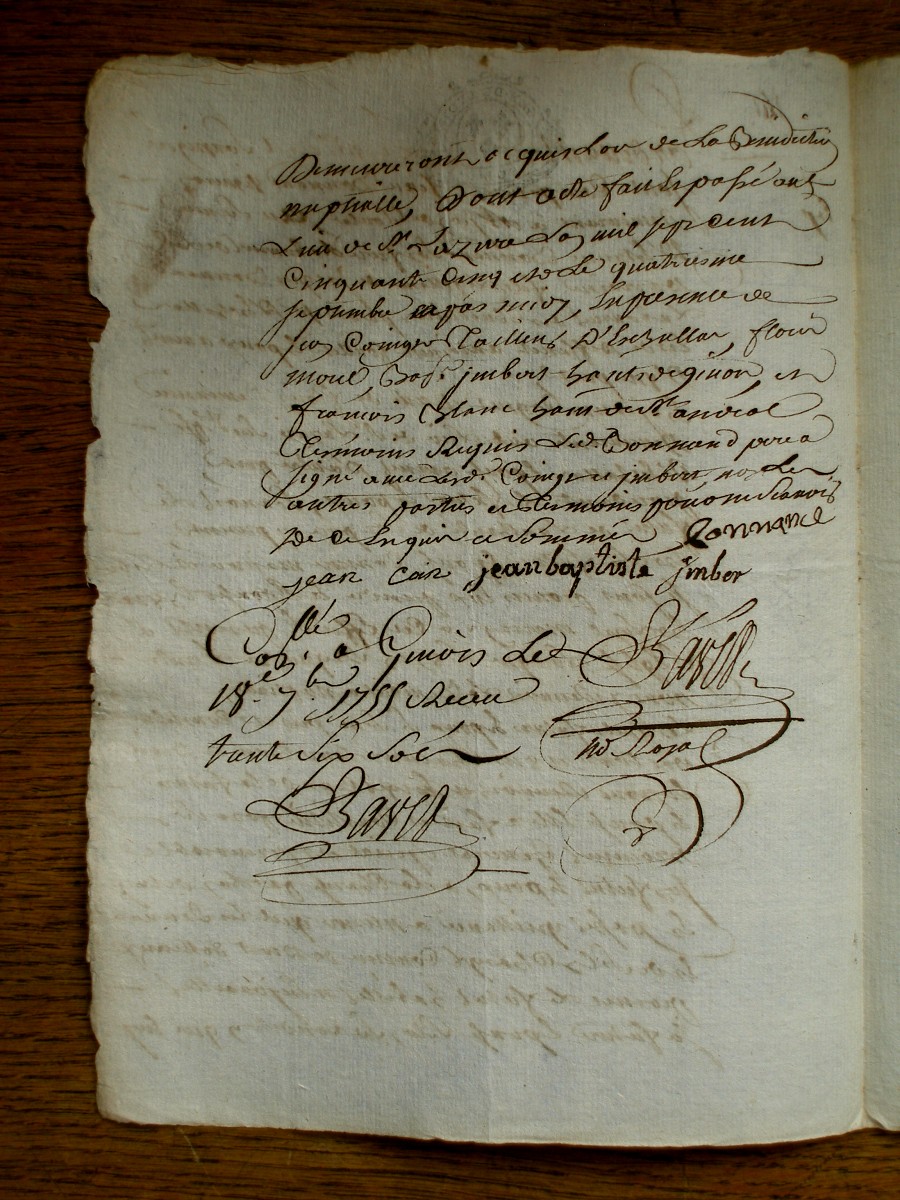 Demeureront acquis Lor de La Benediction
nuptialle, Dont acte fait Et passé au
Lieu de St Lazare Lan mil sept Cent
Cinquante Cinq et le quatriesme
septembre apres midy, En presence de
jean Coinge Tailleur D'
Bapt. jmbert hants de givors, et
francois Blanc hant de St andeol
Tesmoins Requis Led. Bonnand pere a
signé avec Lesd. Coinge et jmbert non Les
autres parties et Tesmoins pour ne scavoir
De ce Enquis et Sommés Bonnance
jean Coin jean baptiste jmber
Collé a Givors Le
18e 7bre 1755 Receu
trante Six Sols
no Royal